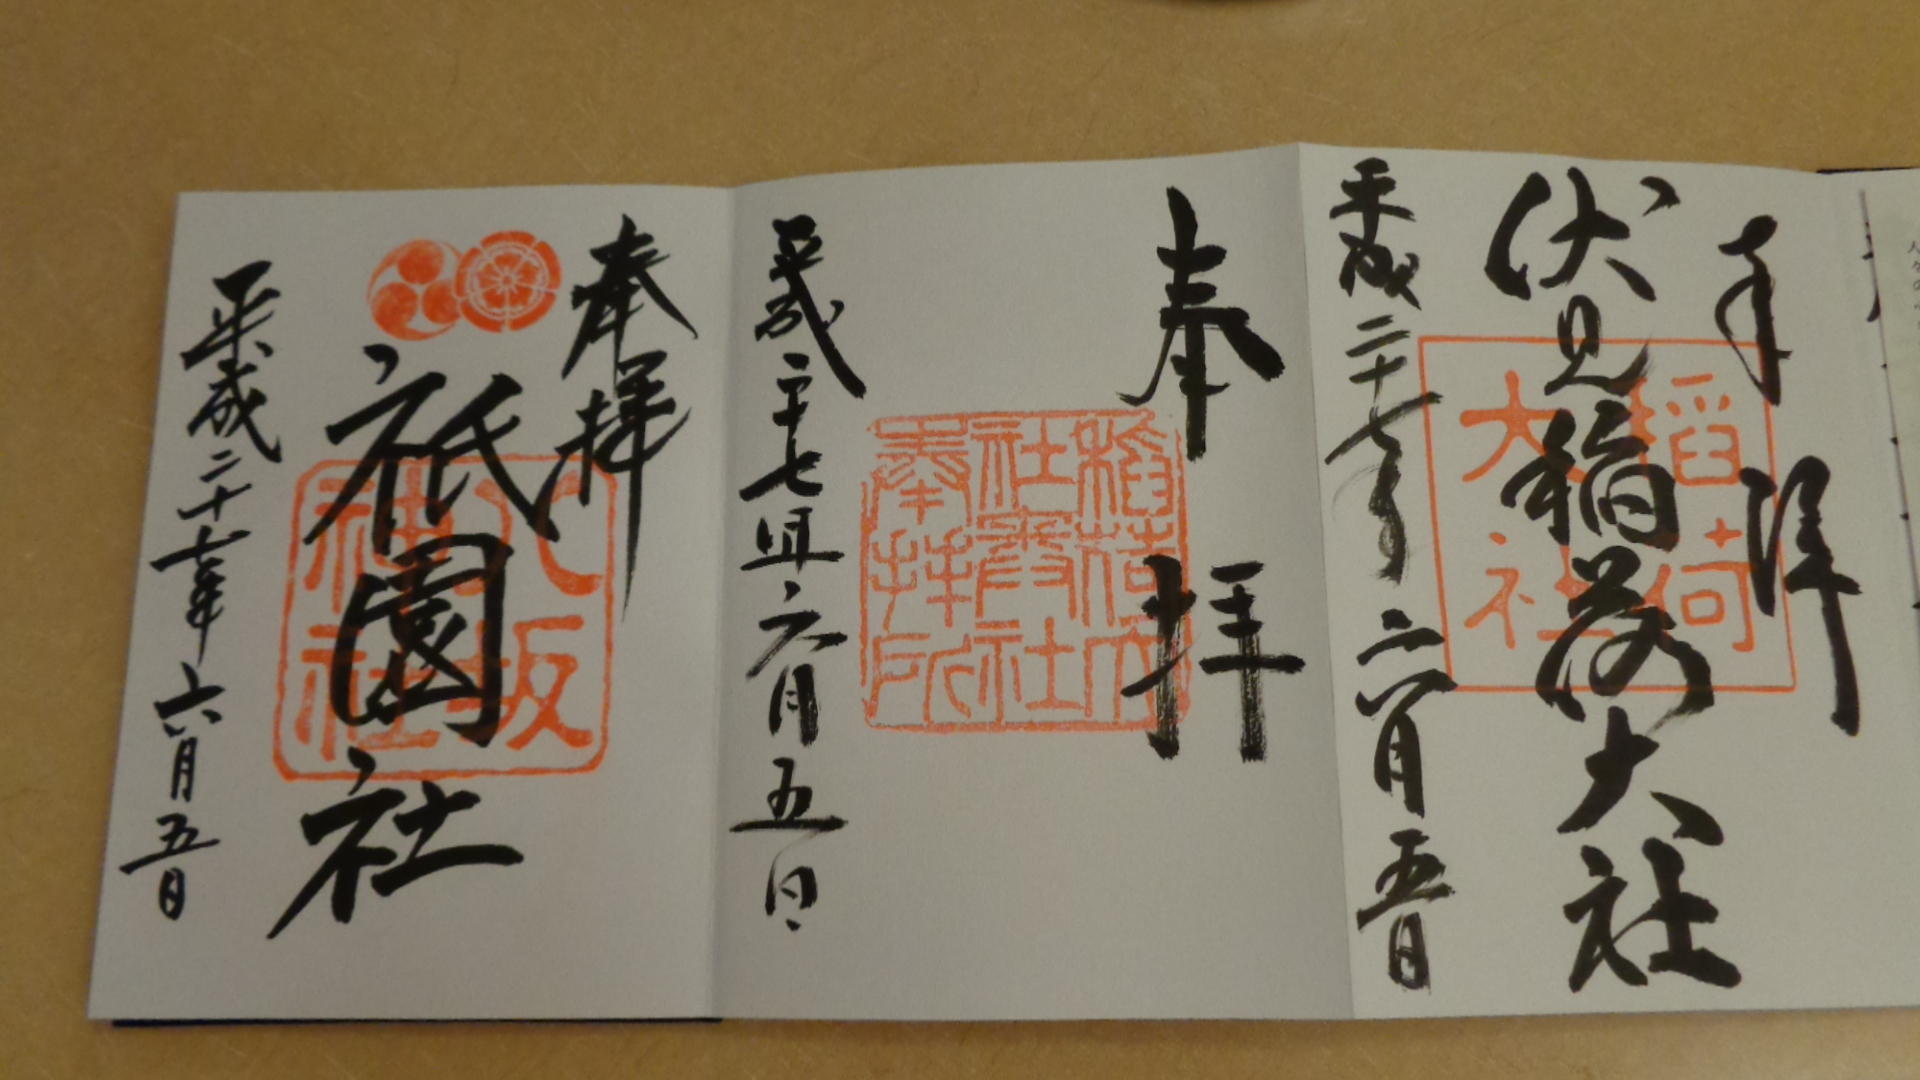 奉拝
伏見稲荷大社
稲荷
大社
平成二十七年六月五日
奉拝
稲荷大
社奥社
奉拝所
平成二十七年六月五日
奉拝
祇園社
八坂
神社
平成二十七年六月五日